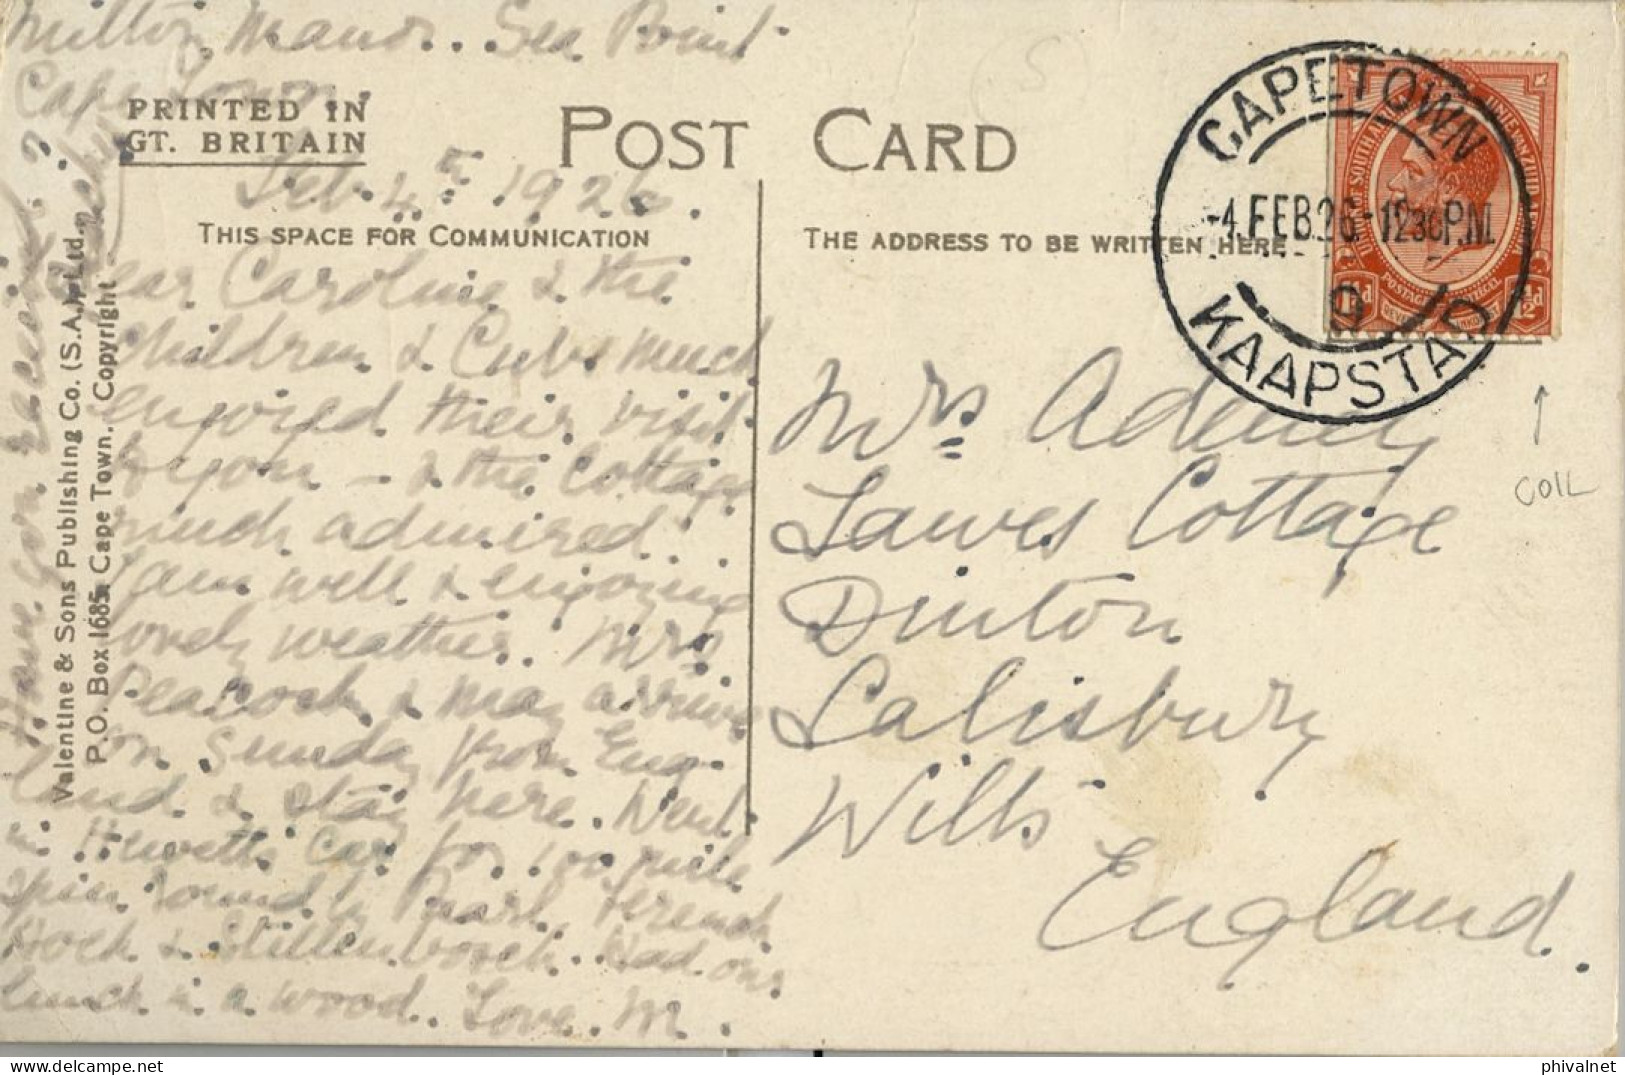 Milton Manor. Sea Point
Cape Town.
PRINTED IN
GT. BRITAIN
POST CARD
Feb. 4th 1926.
THIS SPACE FOR COMMUNICATION
THE ADDRESS TO BE WRITTEN HERE
Dear Caroline & the
children & Cubs much
enjoyed their visit
to you - & the Cottage
much admired.
I am well & enjoying
lovely weather. Mrs
Peacock & May arrive
on Sunday from Eng-
land & stay here. Went
in Hewetts car for 100 mile
spin round by Paarl, French
Hoek & Stellenbosch. Had our
lunch in a wood. Love. M.
Have you received
Valentine & Sons Publishing Co. (S.A.) Ltd.
P.O. Box 1685, Cape Town. Copyright
CAPETOWN
-4.FEB.26.-1230P.M.
9
KAAPSTAD
UNIE VAN ZUID AFRIKA
POSTAGE
½d
Mrs Adeney
Lawes Cottage
Dinton
Salisbury
Wilts
England.
(S)
↑
COIL
delcampe.net
phivalnet